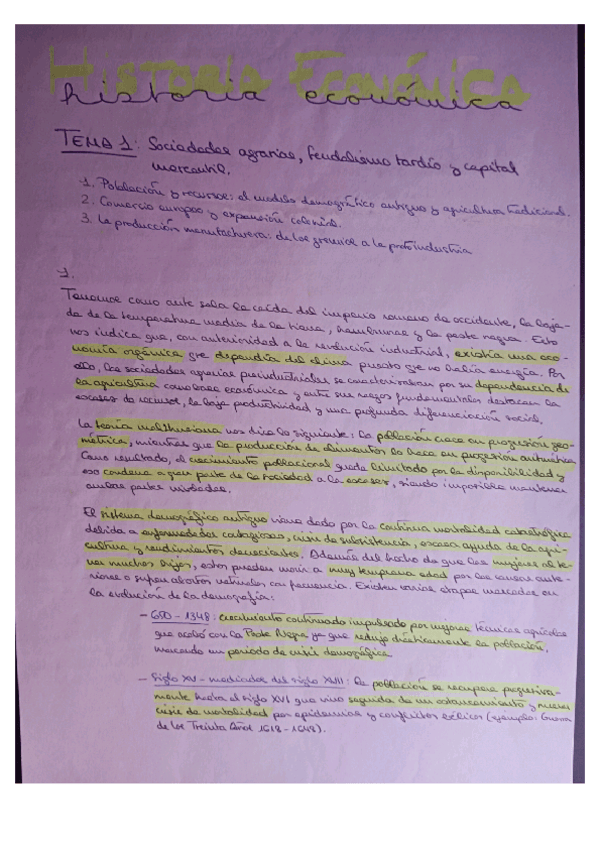 Historia Económica
historia económica
TEMA 1: Sociedades agrarias, feudalismo tardío y capital
mercantil.
1. Población y recursos: el modelo demográfico antiguo y agricultura tradicional.
2. Comercio europeo y expansión colonial.
3. La producción manufacturera: de los gremios a la protoindustria
1.
Tenemos como ante sala la caída del imperio romano de occidente, la baja-
da de la temperatura media de la tierra, hambrunas y la peste negra. Esto
nos indica que, con anterioridad a la revolución industrial, existía una eco-
nomía orgánica que dependía del clima puesto que no había energía. Por
ello, las sociedades agrarias preindustriales se caracterizaban por su dependencia de
la agricultura como base económica y entre sus rasgos fundamentales destacan la
escasez de recursos, la baja productividad y una profunda diferenciación social.
La teoría malthusiana nos dice lo siguiente: la población crece en progresión geo-
métrica, mientras que la producción de alimentos lo hace en progresión aritmética
Como resultado, el crecimiento poblacional queda limitado por la disponibilidad y
eso condena a gran parte de la sociedad a la escasez, siendo imposible mantener
ambas partes
El sistema demográfico antiguo viene dado por la continua mortalidad catastrófica
debida a enfermedades contagiosas, crisis de subsistencia, escasa ayuda de la agri-
cultura y rendimientos decrecientes. Además del hecho de que las mujeres al te-
ner muchos hijos, estos pueden morir a muy temprana edad por las causas ante-
riores o sufren abortos naturales con frecuencia. Existen varias etapas marcadas en
la evolución de la demografía:
- 650 - 1348: crecimiento continuado impulsado por mejores técnicas agrícolas
que acabó con la Peste Negra ya que redujo drásticamente la población,
marcando un periodo de crisis demográfica.
- Siglo XV - mediados del siglo XVIII: la población se recupera progresiva-
mente hasta el siglo XVI que vino seguida de un estancamiento y nueva
crisis de mortalidad por epidemias y conflictos bélicos (ejemplo: Guerra
de los Treinta Años 1618 - 1648).